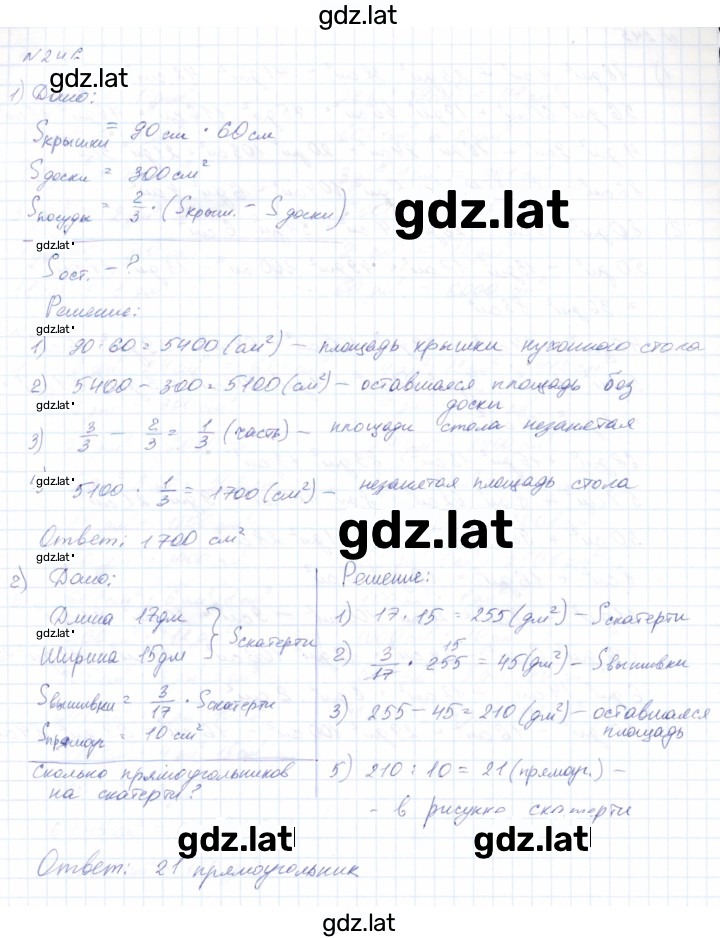 gdz.lat
gdz.lat
1) Дано:
Sкрышки = 90см · 60см
Sдоски = 300см²
Sпосуды = 2/3 · (Sкрыш. - Sдоски)
gdz.lat
gdz.lat
Sост. - ?
Решение:
gdz.lat
1) 90·60 = 5400 (см²) – площадь крышки кухонного стола
2) 5400 – 300 = 5100 (см²) – оставшаяся площадь без доски
gdz.lat
3) 3/3 – 2/3 = 1/3 (часть) – площади стола незанятая
gdz.lat
5100 · 1/3 = 1700 (см²) – незанятая площадь стола
Ответ: 1700 см²
gdz.lat
gdz.lat
2) Дано:
Длина 17дм
gdz.lat
Ширина 15дм
Sскатерти
Sвышивки = 3/17 · Sскатерти
gdz.lat
Sпрямоуг = 10 см²
Сколько прямоугольников
на скатерти?
Решение:
1) 17 · 15 = 255 (дм²) – Sскатерти
2) 3/17 · 255 15 = 45 (дм²) – Sвышивки
3) 255 – 45 = 210 (дм²) – оставшаяся площадь
5) 210 : 10 = 21 (прямоуг.) –
- в рисунке скатерти
gdz.lat
gdz.lat
Ответ: 21 прямоугольник
gdz.lat